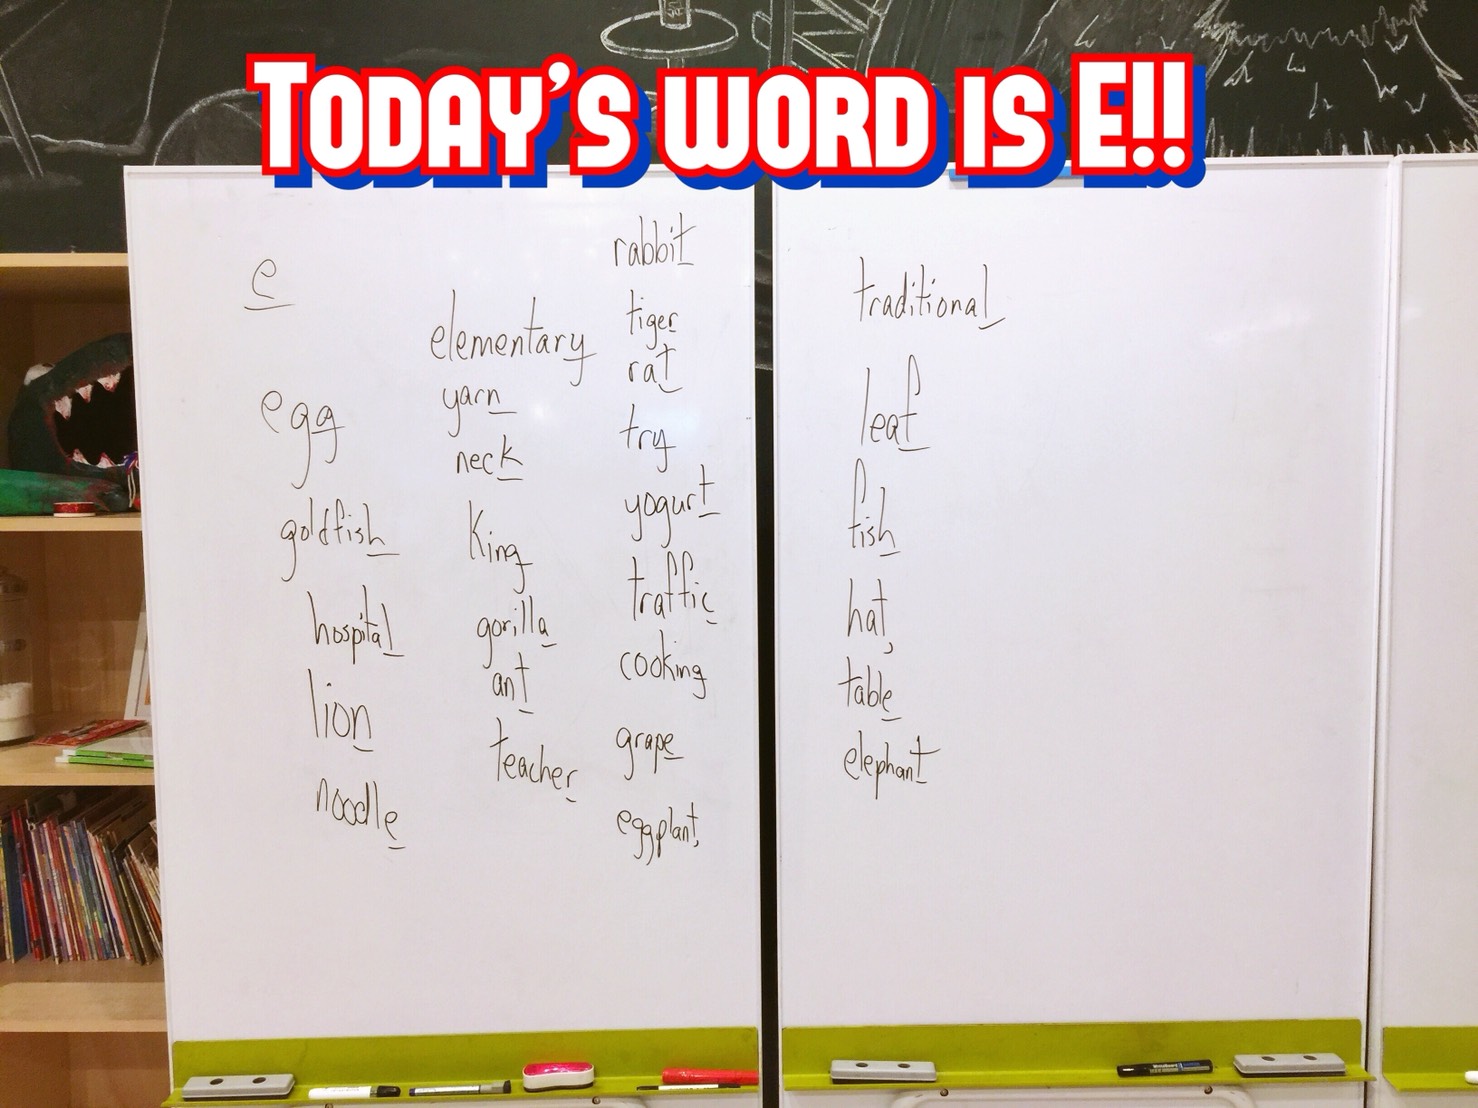 TODAY'S WORD IS E!!
e
egg
goldfish
hospital
lion
noodle
elementary
yarn
neck
King
gorilla
ant
teacher
rabbit
tiger
rat
try
yogurt
traffic
cooking
grape
eggplant
traditional
leaf
fish
hat
table
elephant